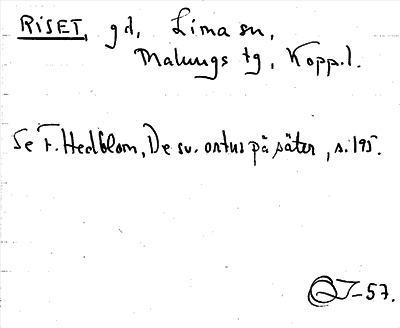 RISET, gd, Lima sn,
Malungs tg, Kopp.l.
Se F. Hedblom, De sv. ortns på säter, s. 195.
-57.